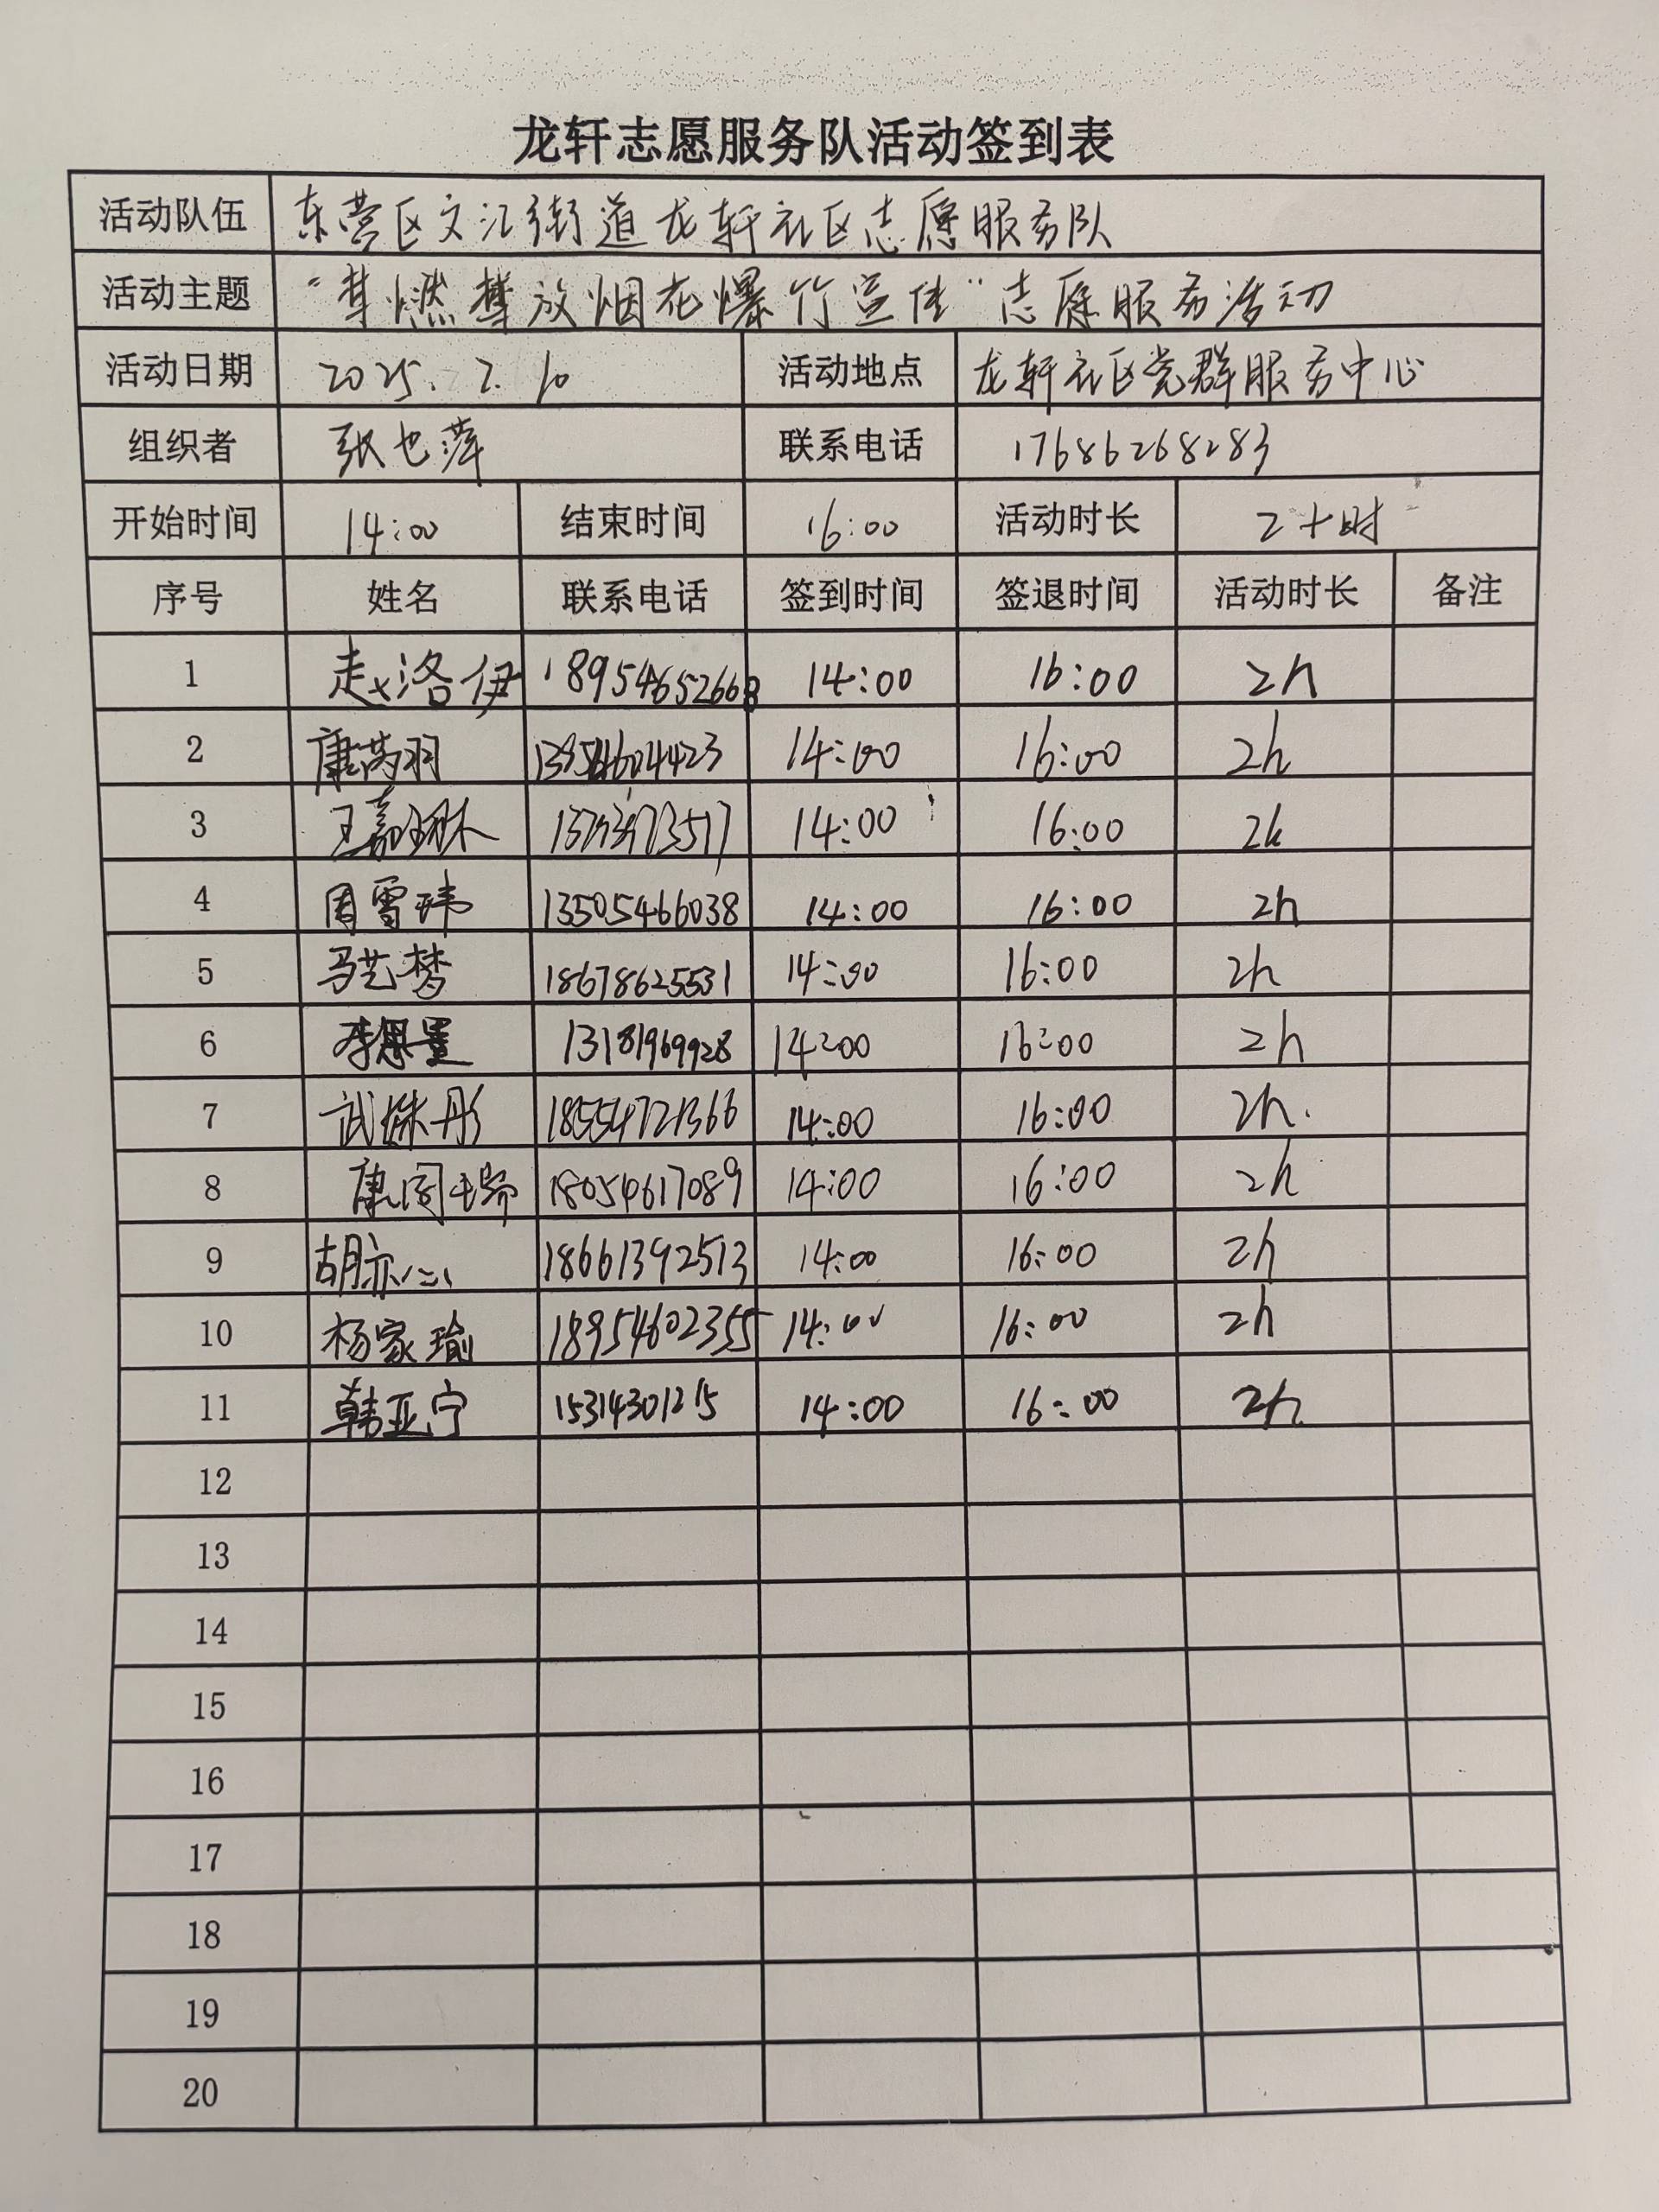 龙轩志愿服务队活动签到表
活动队伍 东营区文汇街道龙轩社区志愿服务队
活动主题 "禁燃禁放烟花爆竹宣传"志愿服务活动
活动日期 2025.2.10 活动地点 龙轩社区党群服务中心
组织者 张也萍 联系电话 17686268283
开始时间 14:00 结束时间 16:00 活动时长 2小时
序号 姓名 联系电话 签到时间 签退时间 活动时长 备注
1 赵洛伊 18954652668 14:00 16:00 2h
2 康芮羽 14:00 16:00 2h
3 王嘉琳 14:00 16:00 2h
4 周雪玮 13505466038 14:00 16:00 2h
5 马艺梦 18678625531 14:00 16:00 2h
6 13181969928 14:00 16:00 2h
7 武姝彤 18554721366 14:00 16:00 2h.
8 18054617089 14:00 16:00 2h
9 胡亦心 18661392513 14:00 16:00 2h
10 杨家瑜 18954602355 14:00 16:00 2h
11 韩亚宁 15314301215 14:00 16:00 2h
12
13
14
15
16
17
18
19
20